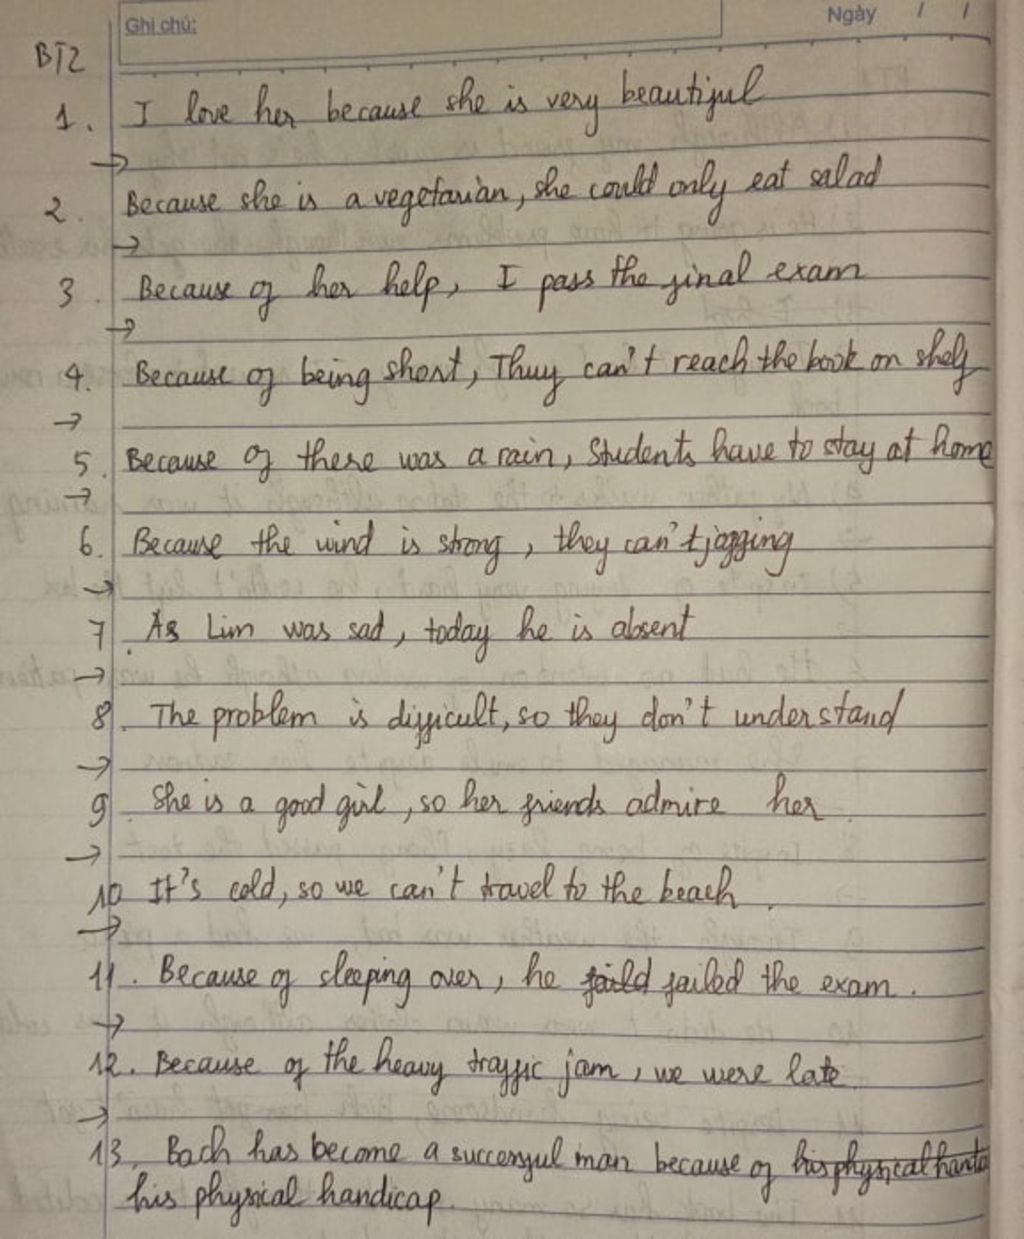 Ghi chú:
Ngày / /
BT2
1. I love her because she is very beautiful
→
2. Because she is a vegetarian, she could only eat salad
→
3. Because of her help, I pass the final exam
→
4. Because of being short, Thuy can't reach the book on shelf
→
5. Because of there was a rain, Students have to stay at home
→
6. Because the wind is strong, they can't jogging
→
7. As Lim was sad, today he is absent
→
8. The problem is difficult, so they don't understand
→
9. She is a good girl, so her friends admire her.
→
10 It's cold, so we can't travel to the beach.
→
11. Because of sleeping over, he faild failed the exam.
→
12. Because of the heavy traffic jam, we were late
→
13. Bach has become a successful man because of his physical
his physical handicap.